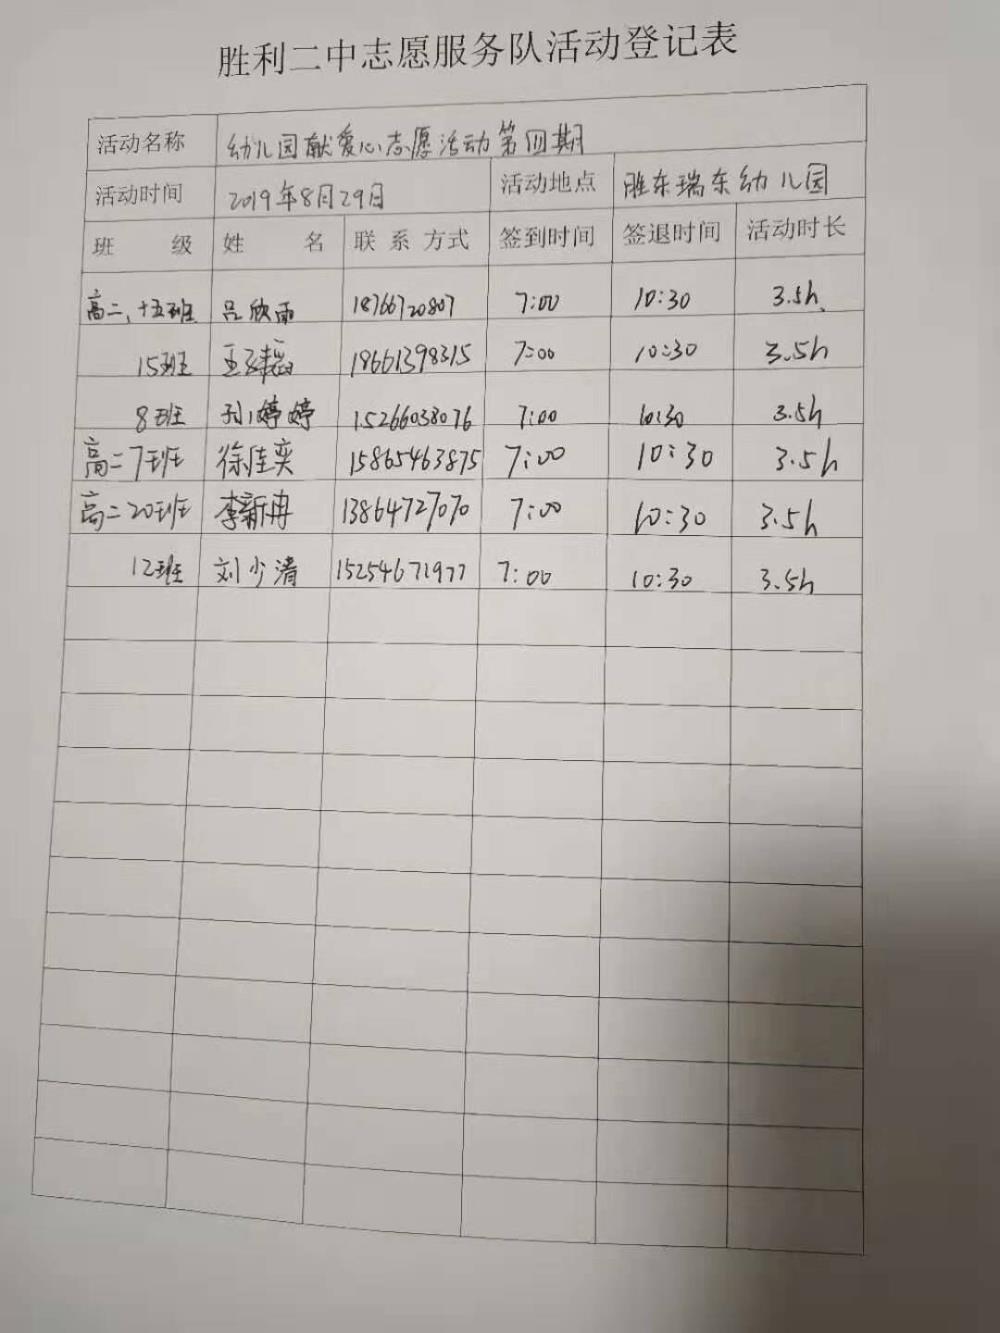 胜利二中志愿服务队活动登记表
活动名称 幼儿园献爱心志愿活动第四期
活动时间 2019年8月29日 活动地点 胜东瑞东幼儿园
班 级 姓 名 联系方式 签到时间 签退时间 活动时长
高二、十五班 吕欣雨 18766720807 7:00 10:30 3.5h
15班 18661398315 7:00 10:30 3.5h
8班 孙婷婷 15266038076 7:00 10:30 3.5h
高二7班 徐佳奕 15865463875 7:00 10:30 3.5h
高二20班 李新冉 13864727070 7:00 10:30 3.5h
12班 刘少清 15254671977 7:00 10:30 3.5h